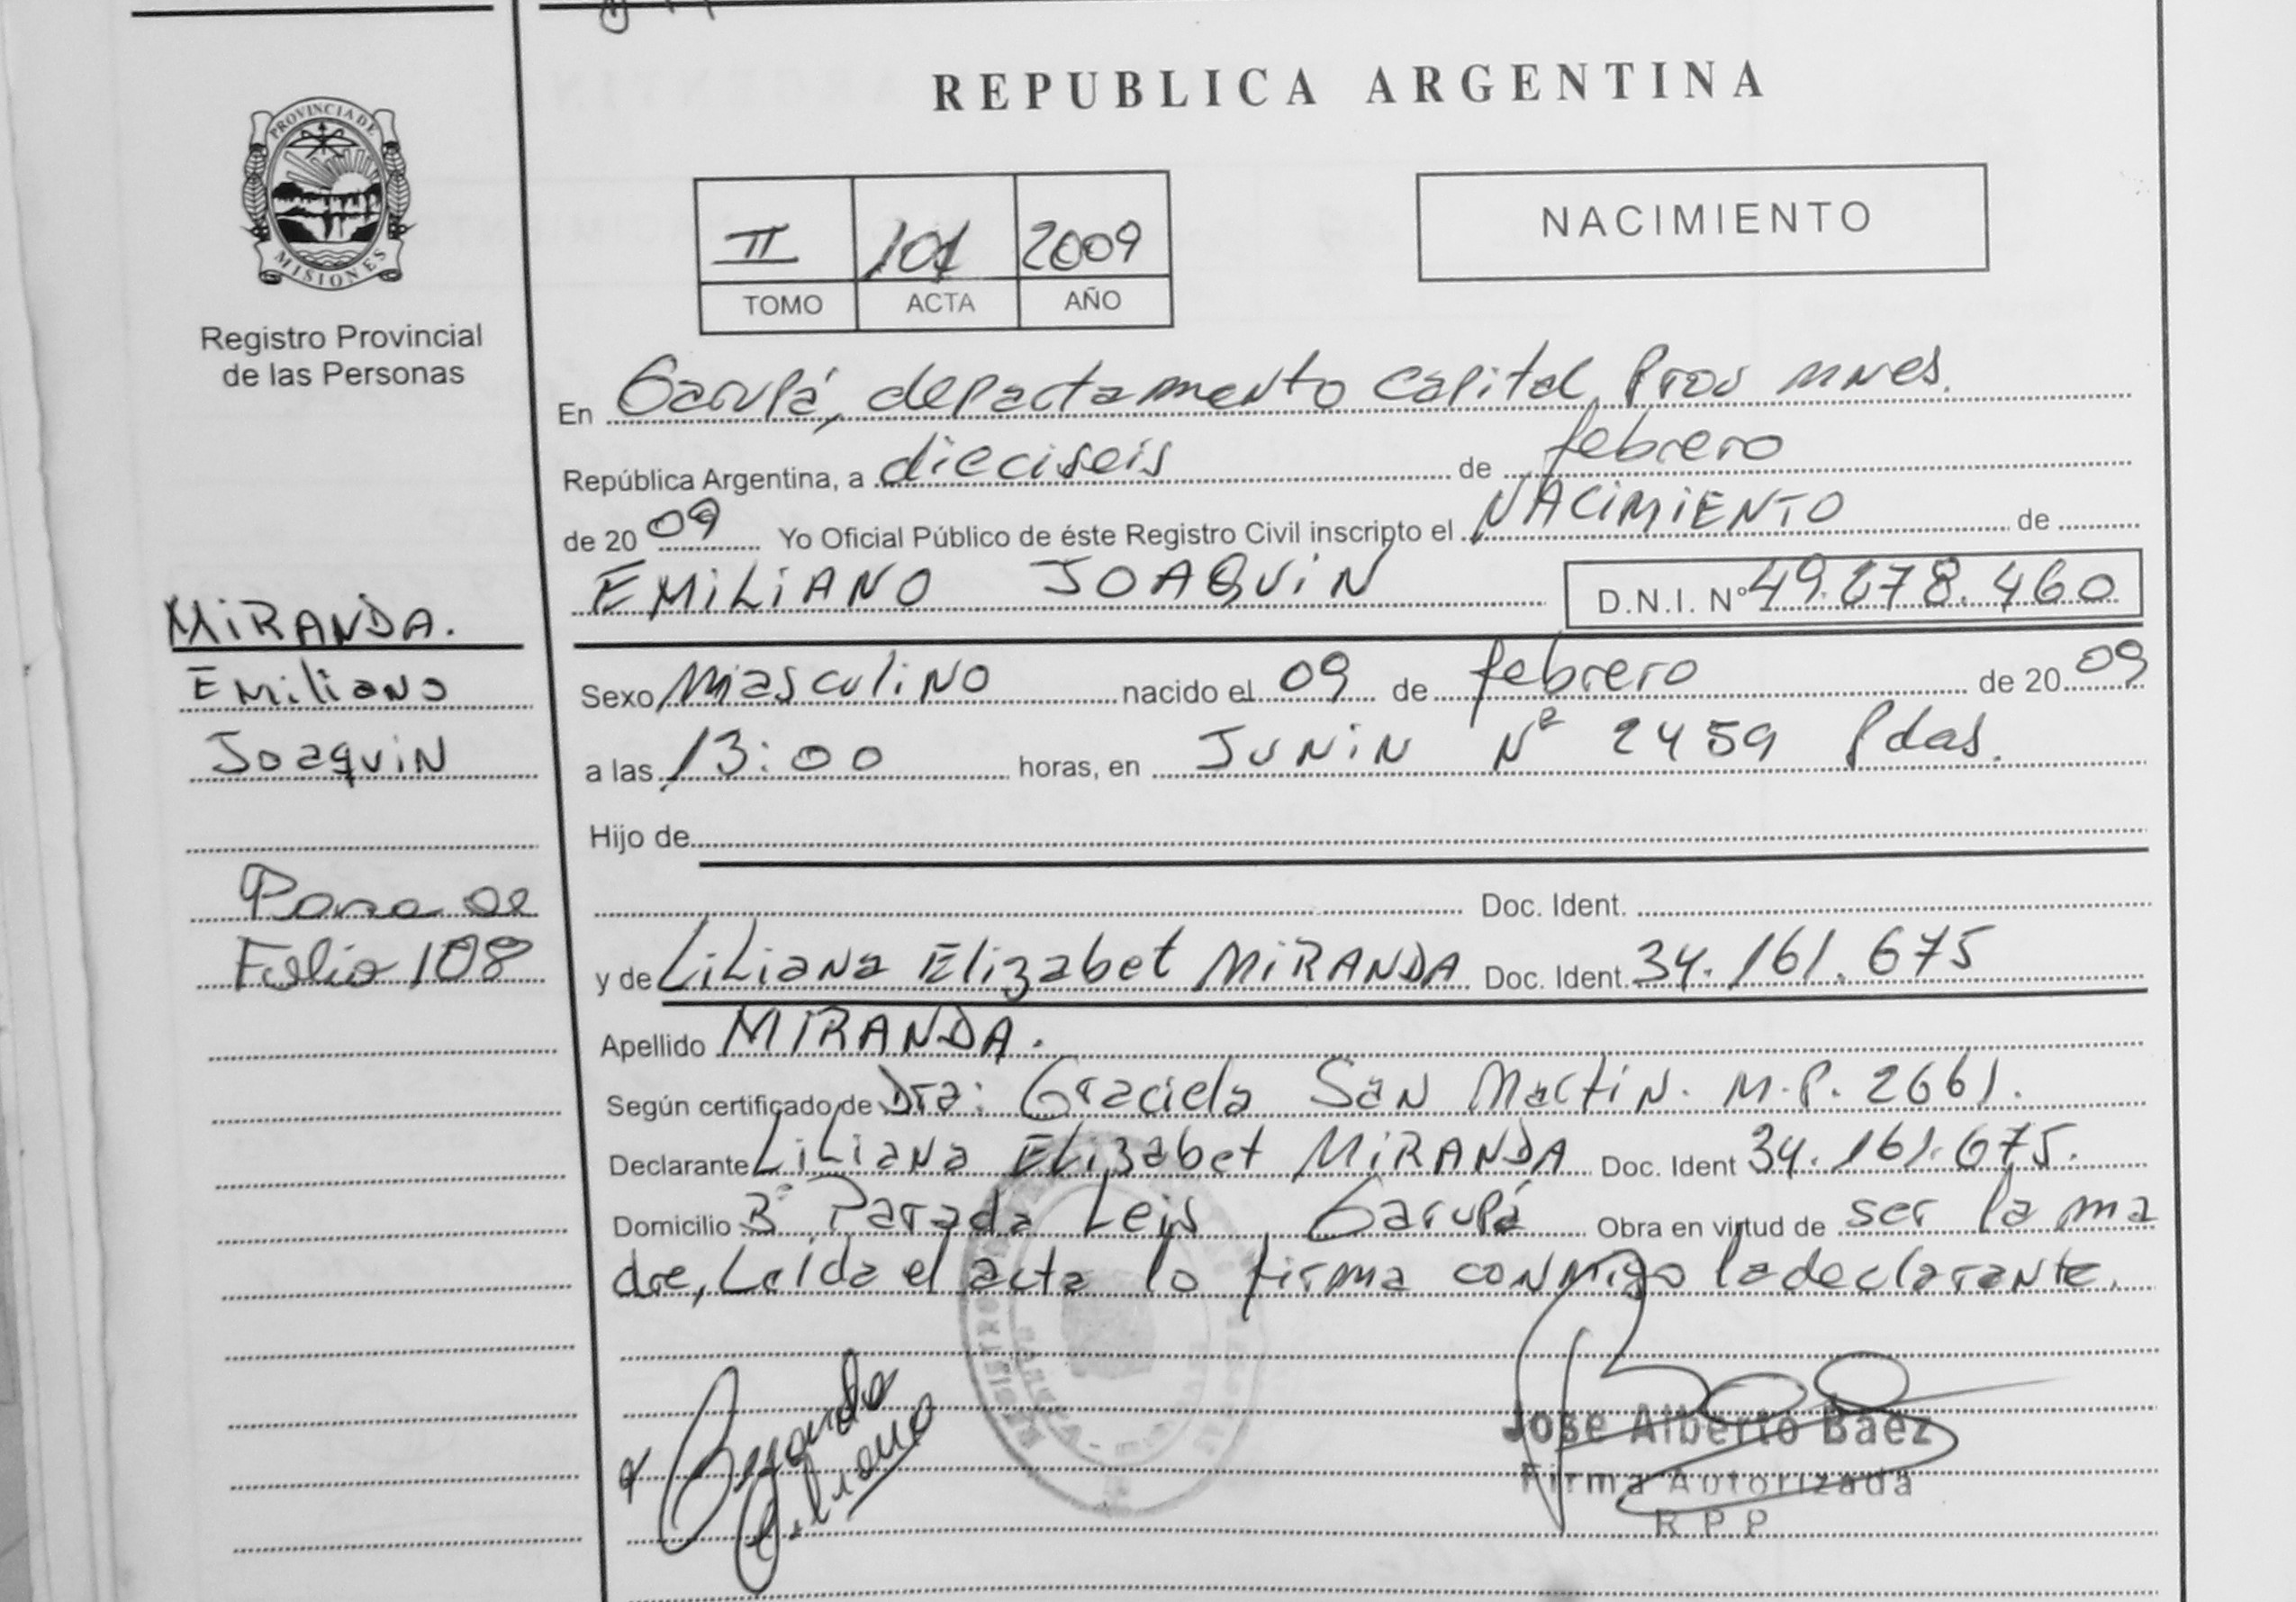 REPUBLICA ARGENTINA
PROVINCIA DE
MISIONES
Registro Provincial
de las Personas
II 101 2009
TOMO ACTA AÑO
NACIMIENTO
En Garupá, departamento Capital, Prov Mnes.
República Argentina, a dieciseis de febrero
de 2009 Yo Oficial Público de éste Registro Civil inscripto el NACIMIENTO de
EMILIANO JOAQUIN D.N.I. Nº 49.278.460
MIRANDA.
Emiliano
Joaquin
Folio 108
Sexo Masculino nacido el 09 de febrero de 2009
a las 13:00 horas, en JUNIN Nº 2459 Pdas.
Hijo de
Doc. Ident.
y de Liliana Elizabet MIRANDA Doc. Ident. 34.161.675
Apellido MIRANDA.
Según certificado de Dra: Graciela San Martin. M.P. 2661.
Declarante Liliana Elizabet MIRANDA Doc. Ident 34.161.675.
Domicilio 3ª Parada Leis, Garupá Obra en virtud de ser la ma
dre, Leída el acta lo firma conmigo la declarante.
Jose Alberto Baez
Firma Autorizada
R P P